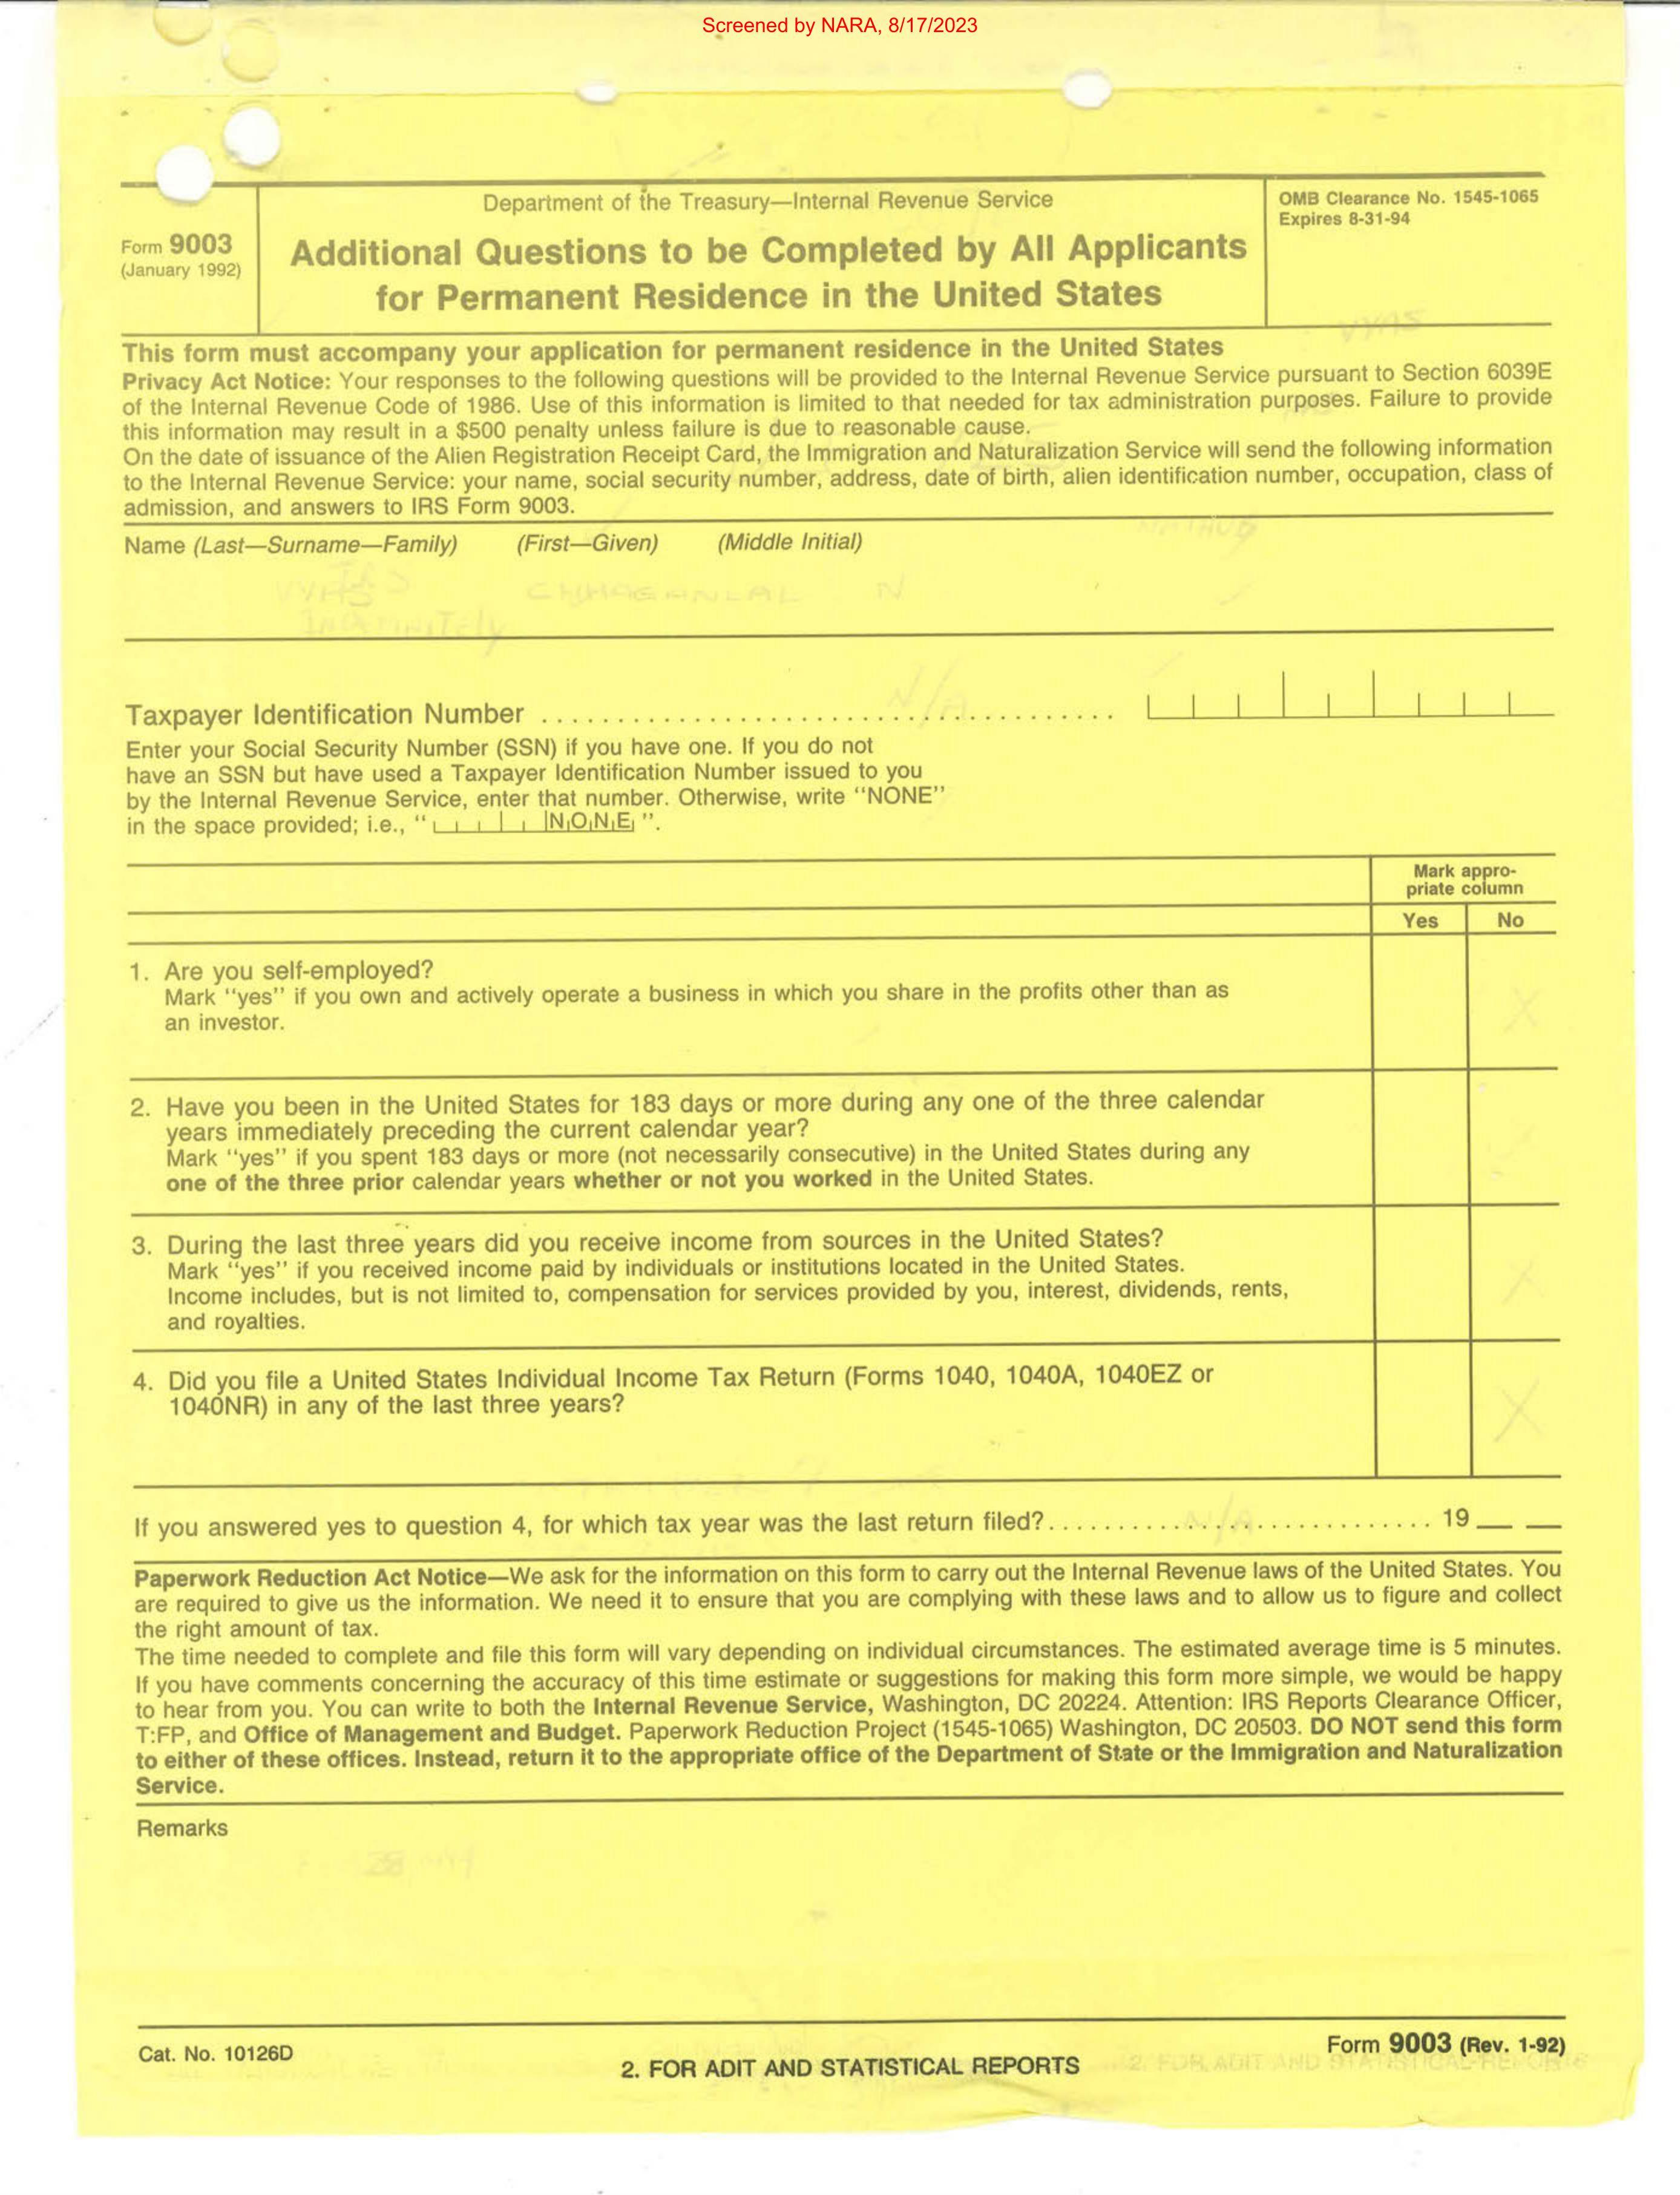 Screened by NARA, 8/17/2023
Form 9003
(January 1992)
Department of the Treasury—Internal Revenue Service
Additional Questions to be Completed by All Applicants
for Permanent Residence in the United States
OMB Clearance No. 1545-1065
Expires 8-31-94
VYAS
This form must accompany your application for permanent residence in the United States
Privacy Act Notice: Your responses to the following questions will be provided to the Internal Revenue Service pursuant to Section 6039E
of the Internal Revenue Code of 1986. Use of this information is limited to that needed for tax administration purposes. Failure to provide
this information may result in a $500 penalty unless failure is due to reasonable cause.
On the date of issuance of the Alien Registration Receipt Card, the Immigration and Naturalization Service will send the following information
to the Internal Revenue Service: your name, social security number, address, date of birth, alien identification number, occupation, class of
admission, and answers to IRS Form 9003.
Name (Last—Surname—Family) (First—Given) (Middle Initial)
VYAS CHHAGANLAL N
Indefinitely
N/A
Taxpayer Identification Number ................................................
Enter your Social Security Number (SSN) if you have one. If you do not
have an SSN but have used a Taxpayer Identification Number issued to you
by the Internal Revenue Service, enter that number. Otherwise, write "NONE"
in the space provided; i.e., " NONE ".
Mark appro-
priate column
Yes No
1. Are you self-employed?
Mark "yes" if you own and actively operate a business in which you share in the profits other than as
an investor.
X
2. Have you been in the United States for 183 days or more during any one of the three calendar
years immediately preceding the current calendar year?
Mark "yes" if you spent 183 days or more (not necessarily consecutive) in the United States during any
one of the three prior calendar years whether or not you worked in the United States.
3. During the last three years did you receive income from sources in the United States?
Mark "yes" if you received income paid by individuals or institutions located in the United States.
Income includes, but is not limited to, compensation for services provided by you, interest, dividends, rents,
and royalties.
X
4. Did you file a United States Individual Income Tax Return (Forms 1040, 1040A, 1040EZ or
1040NR) in any of the last three years?
X
If you answered yes to question 4, for which tax year was the last return filed?........... N/A ............... 19 __ __
Paperwork Reduction Act Notice—We ask for the information on this form to carry out the Internal Revenue laws of the United States. You
are required to give us the information. We need it to ensure that you are complying with these laws and to allow us to figure and collect
the right amount of tax.
The time needed to complete and file this form will vary depending on individual circumstances. The estimated average time is 5 minutes.
If you have comments concerning the accuracy of this time estimate or suggestions for making this form more simple, we would be happy
to hear from you. You can write to both the Internal Revenue Service, Washington, DC 20224. Attention: IRS Reports Clearance Officer,
T:FP, and Office of Management and Budget. Paperwork Reduction Project (1545-1065) Washington, DC 20503. DO NOT send this form
to either of these offices. Instead, return it to the appropriate office of the Department of State or the Immigration and Naturalization
Service.
Remarks
Cat. No. 10126D
2. FOR ADIT AND STATISTICAL REPORTS
Form 9003 (Rev. 1-92)
2. FOR ADIT AND STATISTICAL REPORTS